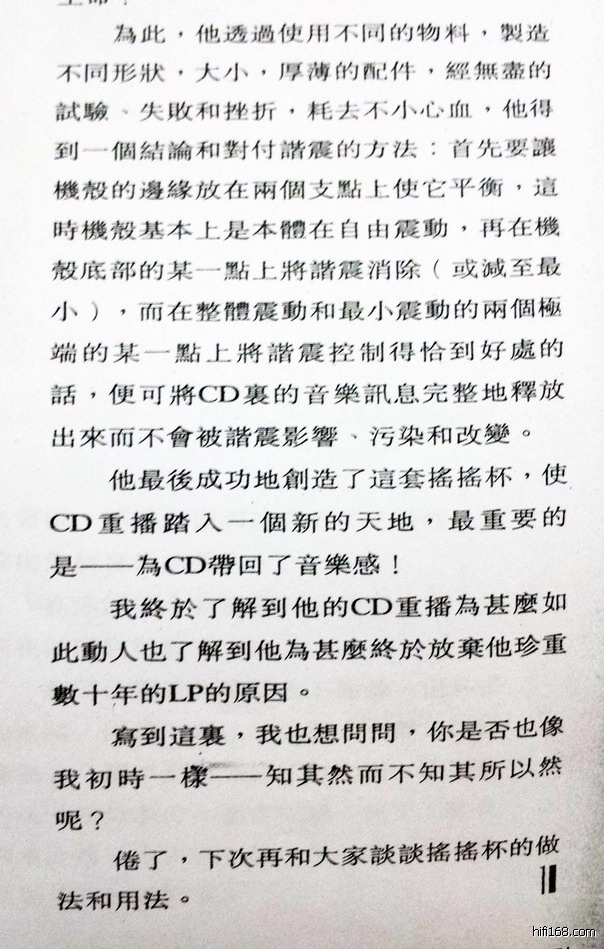 為此，他透過使用不同的物料，製造
不同形狀，大小，厚薄的配件，經無盡的
試驗、失敗和挫折，耗去不小心血，他得
到一個結論和對付諧震的方法：首先要讓
機殼的邊緣放在兩個支點上使它平衡，這
時機殼基本上是本體在自由震動，再在機
殼底部的某一點上將諧震消除（或減至最
小），而在整體震動和最小震動的兩個極
端的某一點上將諧震控制得恰到好處的
話，便可將CD裏的音樂訊息完整地釋放
出來而不會被諧震影響、污染和改變。
他最後成功地創造了這套搖搖杯，使
CD重播踏入一個新的天地，最重要的
是——為CD帶回了音樂感！
我終於了解到他的CD重播為甚麼如
此動人也了解到他為甚麼終於放棄他珍重
數十年的LP的原因。
寫到這裏，我也想問問，你是否也像
我初時一樣——知其然而不知其所以然
呢？
倦了，下次再和大家談談搖搖杯的做
法和用法。
hifi168.com